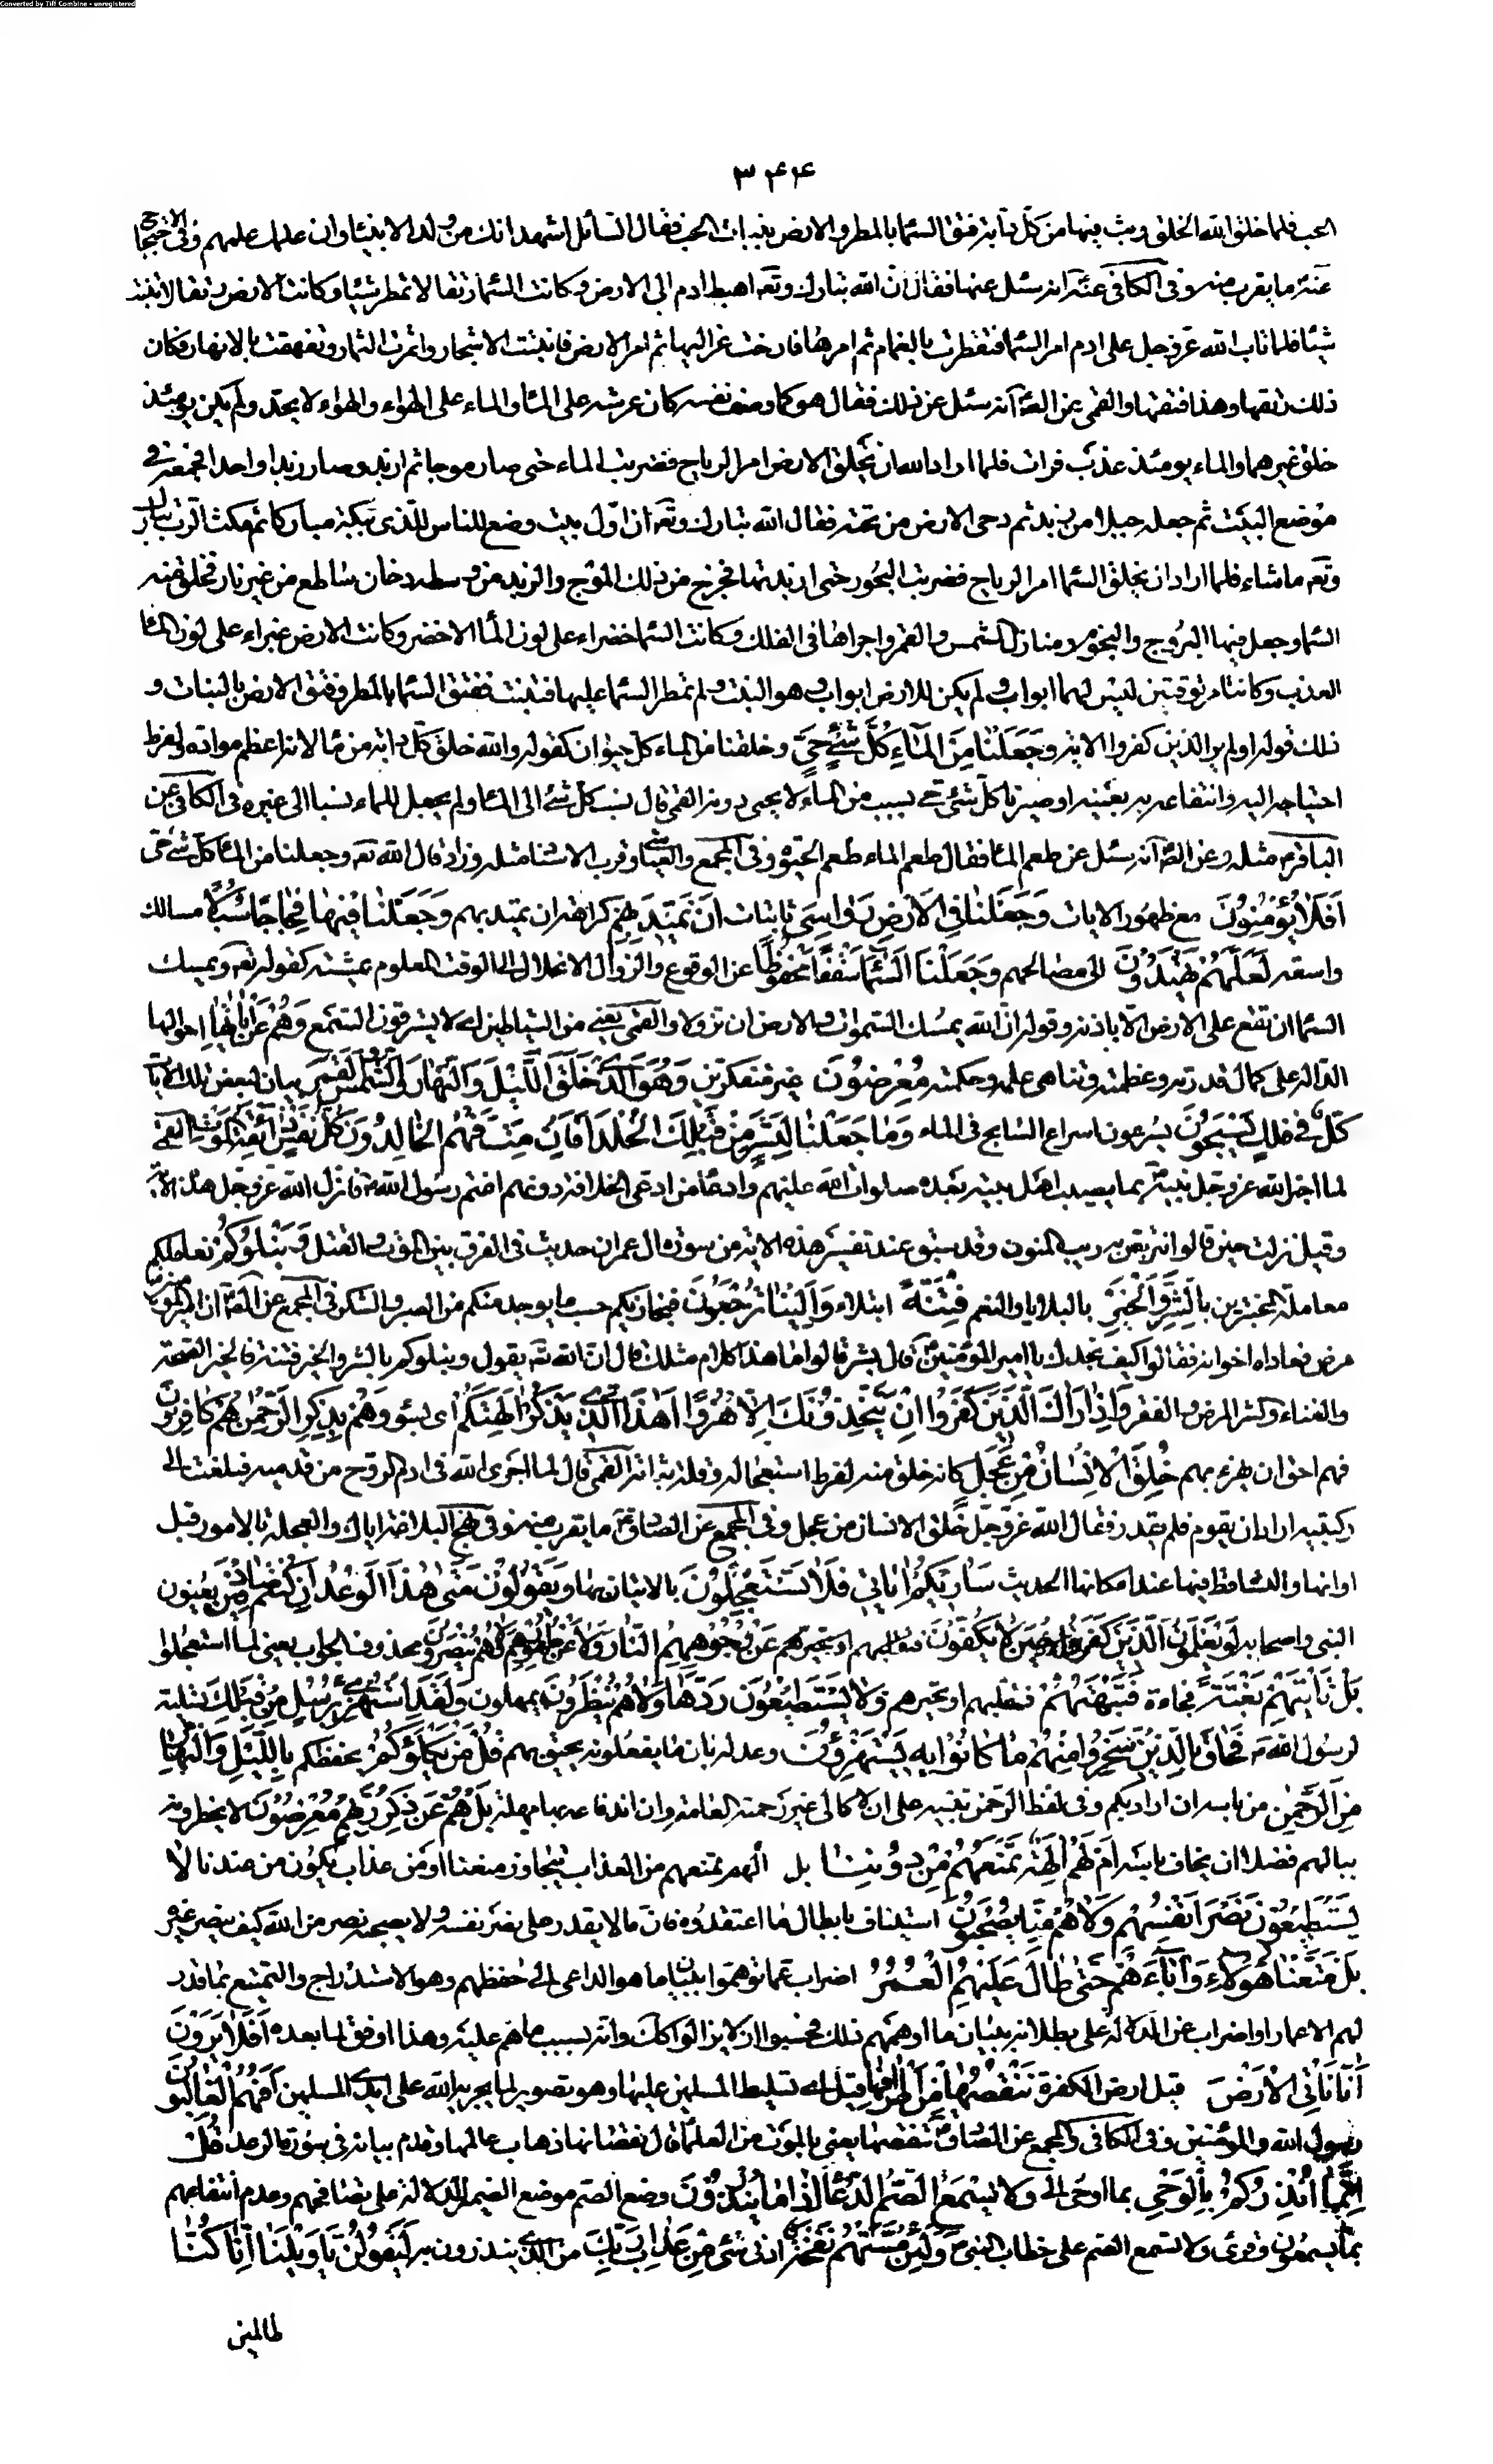 Converted by Tiff Combine - unregistered
۳۴۴
الحب فلما خلق الله الخلق وبث فيها من كل دابة فتق السماء بالمطر والارض بنبات الحب فقال السائل اشهد انك من ولد الانبياء وان علمك علمهم وفى الاحتجاج
عنه ما يقرب منه وفى الكافى عنه انه سئل عنها فقال ان الله تبارك وتع اهبط ادم الى الارض وكانت السماء رتقا لا تمطر شيئا وكانت الارض رتقا لا تنبت
شيئا فلما تاب الله عز وجل على ادم امر السماء فتفطرت بالغمام ثم امرها فارخت عزاليها ثم امر الارض فانبتت الاشجار واثمرت الثمار وتفهقت بالانهار فكان
ذلك رتقها وهذا فتقها والقمى عن الص انه سئل عن ذلك فقال هو كما وصف نفسه كان عرشه على الماء والماء على الهواء والهواء لا يحد ولم يكن يومئذ
خلق غيرهما والماء يومئذ عذب فرات فلما اراد الله ان يخلق الارض امر الرياح فضربت الماء حتى صار موجا ثم ازبد وصار زبدا واحدا فجمعه فى
موضع البيت ثم جعله جبلا من زبد ثم دحى الارض من تحته فقال الله تبارك وتع ان اول بيت وضع للناس للذى ببكة مباركا ثم مكث الرب تبارك
وتع ما شاء فلما اراد ان يخلق السماء امر الرياح فضربت البحور حتى ازبدتها فخرج من ذلك الموج والزبد من وسطه دخان ساطع من غير نار فخلق منه
السماء وجعل فيها البروج والنجوم ومنازل الشمس والقمر واجراها فى الفلك وكانت السماء خضراء على لون الماء الاخضر وكانت الارض غبراء على لون الماء
العذب وكانتا مرتوقتين ليس لهما ابواب ولم يكن للارض ابواب وهو النبت ولم تمطر السماء عليها فتنبت ففتق السماء بالمطر وفتق الارض بالنبات و
ذلك قوله اولم ير الذين كفروا الاية وَجَعَلْنَا مِنَ الْمَاءِ كُلَّ شَىْءٍ حَىٍّ وخلقنا من الماء كل حيوان كقوله والله خلق كل دابة من ماء لانه اعظم مواده ولفرط
احتياجه اليه وانتفاعه به بعينه او صيرنا كل شئ حى بسبب من الماء لا يحيى دونه القمى قال نسب كل شئ الى الماء ولم يجعل للماء نسبا الى غيره فى الكافى عن
الباقر مثله وعن الص انه سئل عن طعم الماء فقال طعم الماء طعم الحيوة وفى المجمع والعياشى وقرب الاسناد مثله وزاد قال الله تع وجعلنا من الماء كل شئ حى
اَفَلَا يُؤْمِنُونَ مع ظهور الايات وَجَعَلْنَا فِى الْاَرْضِ رَوَاسِىَ ثابتات اَنْ تَمِيدَ بِهِمْ كراهة ان تميد بهم وَجَعَلْنَا فِيهَا فِجَاجًا سُبُلًا مسالك
واسعة لَعَلَّهُمْ يَهْتَدُونَ الى مصالحهم وَجَعَلْنَا السَّمَاءَ سَقْفًا مَحْفُوظًا عن الوقوع والزوال والانحلال الى الوقت المعلوم بمشيته كقوله تع ويمسك
السماء ان تقع على الارض الا باذنه وقوله ان الله يمسك السموات والارض ان تزولا والقمى يعنى من الشياطين اى لا يسترقون السمع وَهُمْ عَنْ اٰيَاتِهَا احوالها
الدالة على كمال قدرته وعظمته وتناهى علمه وحكمته مُعْرِضُونَ غير متفكرين وَهُوَ الَّذِى خَلَقَ اللَّيْلَ وَالنَّهَارَ وَالشَّمْسَ وَالْقَمَرَ بيان لبعض تلك الايات
كُلٌّ فِى فَلَكٍ يَسْبَحُونَ يسرعون اسراع السابح فى الماء وَمَا جَعَلْنَا لِبَشَرٍ مِنْ قَبْلِكَ الْخُلْدَ اَفَاِنْ مِتَّ فَهُمُ الْخَالِدُونَ كُلُّ نَفْسٍ ذَائِقَةُ الْمَوْتِ القمى
لما اخبر الله عز وجل نبيه بما يصيب اهل بيته بعده صلوات الله عليهم وادعاء من ادعى الخلافة دونهم اغتم رسول الله ص فانزل الله عز وجل هذه الاية
وقيل نزلت حين قالوا نتربص به ريب المنون وقد سبق عند تفسير هذه الاية من سورة ال عمران حديث فى الفرق بين الموت والقتل وَنَبْلُوكُمْ نعاملكم
معاملة المختبرين بِالشَّرِّ وَالْخَيْرِ بالبلايا والنعم فِتْنَةً ابتلاء وَاِلَيْنَا تُرْجَعُونَ فيجازيكم حسب ما يوجد منكم من الصبر والشكر فى المجمع عن الص ان امير المؤمنين
مرض فعاده اخوانه فقالوا كيف نجدك يا امير المؤمنين قال بشر قالوا ما هذا كلام مثلك قال ان الله تع يقول ونبلوكم بالشر والخير فتنة فالخير الصحة
والغناء والشر المرض والفقر وَاِذَا رَاٰكَ الَّذِينَ كَفَرُوا اِنْ يَتَّخِذُونَكَ اِلَّا هُزُوًا اَهٰذَا الَّذِى يَذْكُرُ اٰلِهَتَكُمْ اى بسوء وَهُمْ بِذِكْرِ الرَّحْمٰنِ هُمْ كَافِرُونَ
فهم احق ان يهزء بهم خُلِقَ الْاِنْسَانُ مِنْ عَجَلٍ كانه خلق منه لفرط استعجاله وقلة ثباته القمى قال لما اجرى الله فى ادم الروح من قدميه فبلغت الى
ركبتيه اراد ان يقوم فلم يقدر فقال الله عز وجل خلق الانسان من عجل وفى المجمع عن الصادق ما يقرب منه وفى نهج البلاغة اياك والعجلة بالامور قبل
اوانها والتساقط فيها عند امكانها الحديث سَاُرِيكُمْ اٰيَاتِى فَلَا تَسْتَعْجِلُونَ بالاتيان بها وَيَقُولُونَ مَتٰى هٰذَا الْوَعْدُ اِنْ كُنْتُمْ صَادِقِينَ يعنون
النبى واصحابه لَوْ يَعْلَمُ الَّذِينَ كَفَرُوا حِينَ لَا يَكُفُّونَ عَنْ وُجُوهِهِمُ النَّارَ وَلَا عَنْ ظُهُورِهِمْ وَلَا هُمْ يُنْصَرُونَ محذوف الجواب يعنى لما استعجلوا
بَلْ تَأْتِيهِمْ بَغْتَةً فجاءة فَتَبْهَتُهُمْ فتغلبهم او تحيرهم فَلَا يَسْتَطِيعُونَ رَدَّهَا وَلَا هُمْ يُنْظَرُونَ يمهلون وَلَقَدِ اسْتُهْزِئَ بِرُسُلٍ مِنْ قَبْلِكَ تسلية
لرسول الله ص فَحَاقَ بِالَّذِينَ سَخِرُوا مِنْهُمْ مَا كَانُوا بِهِ يَسْتَهْزِؤُنَ وعد له بان ما يفعلونه يحيق بهم قُلْ مَنْ يَكْلَؤُكُمْ يحفظكم بِاللَّيْلِ وَالنَّهَارِ
مِنَ الرَّحْمٰنِ من باسه ان اراد بكم وفى لفظ الرحمن تنبيه على ان لا كالئ غير رحمته العامة وان اندفاعه بها مهلة بَلْ هُمْ عَنْ ذِكْرِ رَبِّهِمْ مُعْرِضُونَ لا يخطرونه
ببالهم فضلا ان يخاف باسه اَمْ لَهُمْ اٰلِهَةٌ تَمْنَعُهُمْ مِنْ دُونِنَا بل الهم تمنعهم من العذاب يتجاوز منعنا او من عذاب يكون من عندنا لَا
يَسْتَطِيعُونَ نَصْرَ اَنْفُسِهِمْ وَلَا هُمْ مِنَّا يُصْحَبُونَ استيناف بابطال ما اعتقدوه فان ما لا يقدر على نصر نفسه ولا يصحبه نصر من الله كيف ينصر غيره
بَلْ مَتَّعْنَا هٰؤُلَاءِ وَاٰبَاءَهُمْ حَتّٰى طَالَ عَلَيْهِمُ الْعُمُرُ اضراب عما توهموا ببيان ما هو الداعى الى حفظهم وهو الاستدراج والتمتيع بما قدر
لهم الاعمار او اضراب عن الدلالة على بطلانه ببيان ما اوهمهم ذلك فحسبوا ان لا يزالوا كذلك وانه بسبب ما هم عليه وهذا اوفق لما بعده اَفَلَا يَرَوْنَ
اَنَّا نَأْتِى الْاَرْضَ قيل ارض الكفرة نَنْقُصُهَا مِنْ اَطْرَافِهَا قيل اى بتسليط المسلمين عليها وهو تصوير لما يجريه الله على ايدى المسلمين اَفَهُمُ الْغَالِبُونَ
رسول الله والمؤمنين وفى الكافى والمجمع عن الصادق ننقصها يعنى بالموت من العلماء قال نقصانها ذهاب عالمها وقد مر بيانه فى سورة الرعد قُلْ
اِنَّمَا اُنْذِرُكُمْ بِالْوَحْىِ بما اوحى الى وَلَا يَسْمَعُ الصُّمُّ الدُّعَاءَ اِذَا مَا يُنْذَرُونَ وضع الصم موضع الضمير للدلالة على تصامهم وعدم انتفاعهم
بما يسمعون وقرئ ولا تسمع الصم على خطاب النبى وَلَئِنْ مَسَّتْهُمْ نَفْحَةٌ ادنى شئ مِنْ عَذَابِ رَبِّكَ من الذى ينذرون به لَيَقُولُنَّ يَا وَيْلَنَا اِنَّا كُنَّا
ظالمين